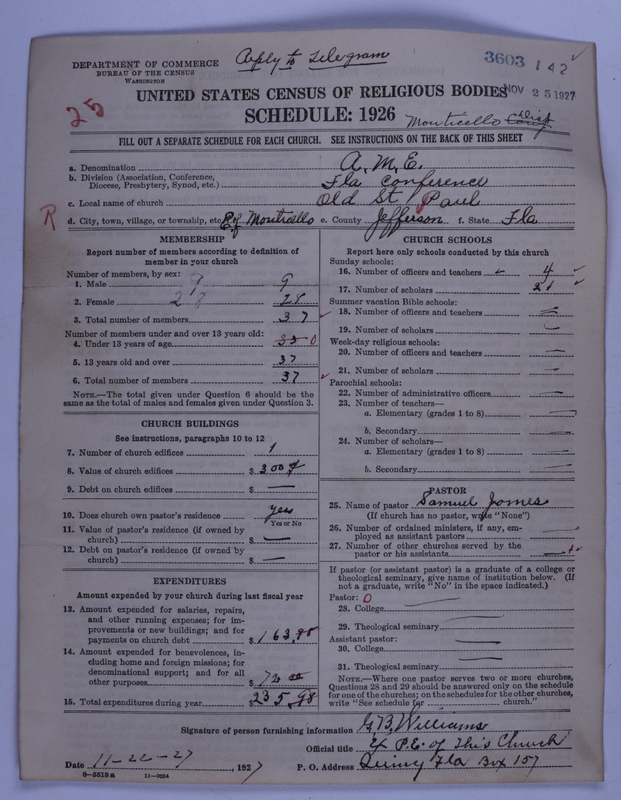 Reply to Telegram
DEPARTMENT OF COMMERCE
BUREAU OF THE CENSUS
WASHINGTON
3603 142
25
UNITED STATES CENSUS OF RELIGIOUS BODIES
NOV 25 1927
SCHEDULE: 1926
Monticello Dist
FILL OUT A SEPARATE SCHEDULE FOR EACH CHURCH. SEE INSTRUCTIONS ON THE BACK OF THIS SHEET
a. Denomination A. M. E.
b. Division (Association, Conference, Diocese, Presbytery, Synod, etc.) Fla Conference
c. Local name of church Old St Paul
R
d. City, town, village, or township, etc. E of Monticello e. County Jefferson f. State Fla
MEMBERSHIP
Report number of members according to definition of
member in your church
Number of members, by sex:
1. Male 9 9
2. Female 28 28
3. Total number of members 37
Number of members under and over 13 years old:
4. Under 13 years of age 0
5. 13 years old and over 37
6. Total number of members 37
NOTE.—The total given under Question 6 should be
same as the total of males and females given under Question 3.
CHURCH BUILDINGS
See instructions, paragraphs 10 to 12
7. Number of church edifices 1
8. Value of church edifices $ 300
9. Debt on church edifices $ —
10. Does church own pastor's residence yes
Yes or No
11. Value of pastor's residence (if owned by
church) $ —
12. Debt on pastor's residence (if owned by
church) $ —
EXPENDITURES
Amount expended by your church during last fiscal year
13. Amount expended for salaries, repairs,
and other running expenses; for im-
provements or new buildings; and for
payments on church debt $ 163.98
14. Amount expended for benevolences, in-
cluding home and foreign missions; for
denominational support; and for all
other purposes $ 72 00
15. Total expenditures during year $ 235.98
CHURCH SCHOOLS
Report here only schools conducted by this church
Sunday schools:
16. Number of officers and teachers 4
17. Number of scholars 21
Summer vacation Bible schools:
18. Number of officers and teachers
19. Number of scholars
Week-day religious schools:
20. Number of officers and teachers —
21. Number of scholars —
Parochial schools:
22. Number of administrative officers —
23. Number of teachers—
a. Elementary (grades 1 to 8)
b. Secondary —
24. Number of scholars—
a. Elementary (grades 1 to 8) —
b. Secondary —
PASTOR
25. Name of pastor Samuel Jones
(If church has no pastor, write "None")
26. Number of ordained ministers, if any, em-
ployed as assistant pastors —
27. Number of other churches served by the
pastor or his assistants —
If pastor (or assistant pastor) is a graduate of a college or
theological seminary, give name of institution below. (If
not a graduate, write "No" in the space indicated.)
Pastor: 0
28. College —
29. Theological seminary —
Assistant pastor:
30. College —
31. Theological seminary —
NOTE.—Where one pastor serves two or more churches,
Questions 28 and 29 should be answered only on the schedule
for one of the churches; on the schedules for the other churches,
write "See schedule for ______ church."
Signature of person furnishing information G. B. Williams
Official title Ex P.E. of This Church
Date 11-22-27, 1927 P. O. Address Quincy Fla Box 157
8—5518a 11—9054